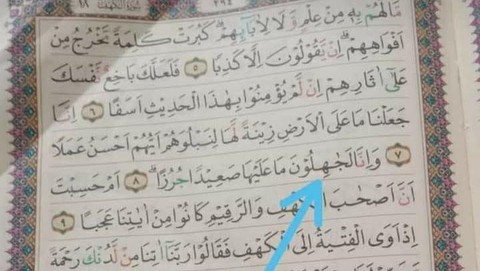 ١٨ ٢٩٤
مَا لَهُمْ بِهٖ مِنْ عِلْمٍ وَّلَا لِاٰبَآئِهِمْۗ كَبُرَتْ كَلِمَةً تَخْرُجُ مِنْ
اَفْوَاهِهِمْۗ اِنْ يَّقُوْلُوْنَ اِلَّا كَذِبًا ٥ فَلَعَلَّكَ بَاخِعٌ نَّفْسَكَ
عَلٰٓى اٰثَارِهِمْ اِنْ لَّمْ يُؤْمِنُوْا بِهٰذَا الْحَدِيْثِ اَسَفًا ٦ اِنَّا
جَعَلْنَا مَا عَلَى الْاَرْضِ زِيْنَةً لَّهَا لِنَبْلُوَهُمْ اَيُّهُمْ اَحْسَنُ عَمَلًا
٧ وَاِنَّا لَجٰهِلُوْنَ مَا عَلَيْهَا صَعِيْدًا جُرُزًاۗ ٨ اَمْ حَسِبْتَ
اَنَّ اَصْحٰبَ الْكَهْفِ وَالرَّقِيْمِ كَانُوْا مِنْ اٰيٰتِنَا عَجَبًا ٩
اِذْ اَوَى الْفِتْيَةُ اِلَى الْكَهْفِ فَقَالُوْا رَبَّنَآ اٰتِنَا مِنْ لَّدُنْكَ رَحْمَةً